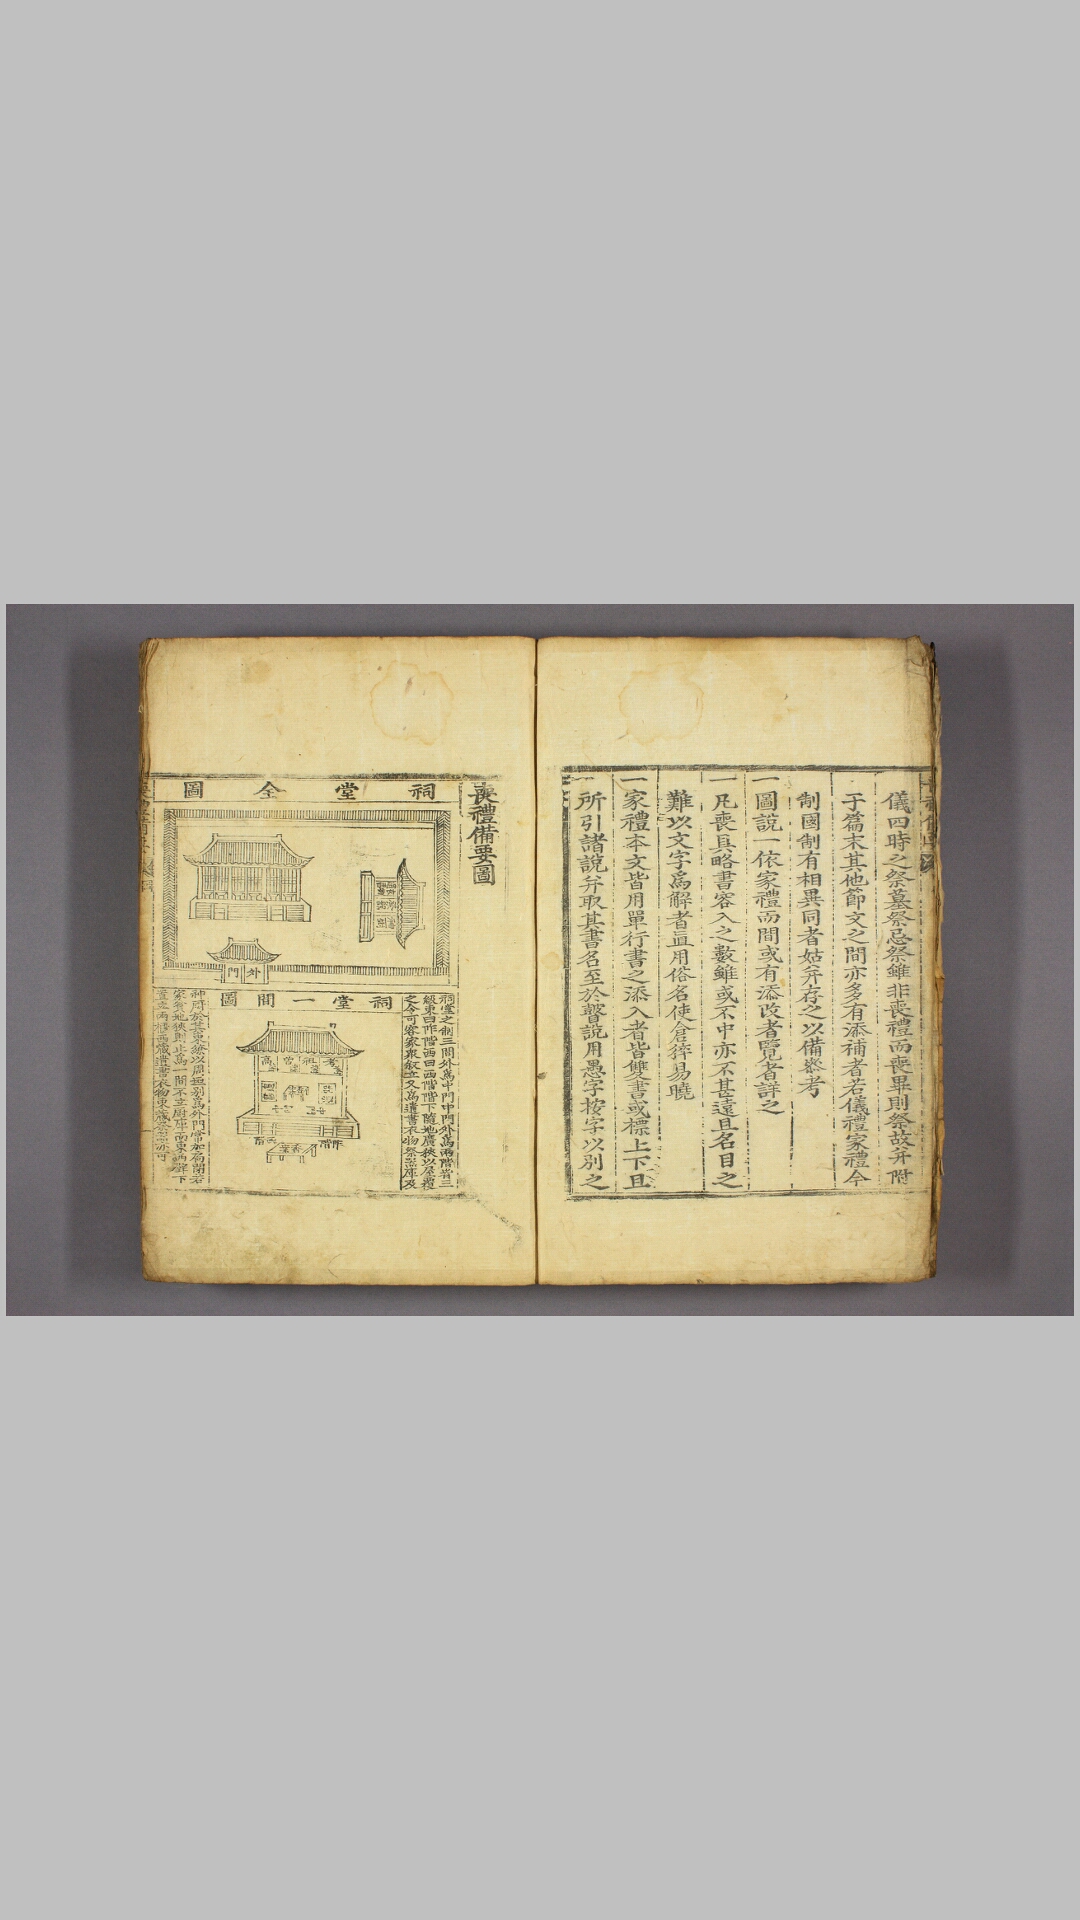 儀四時之祭墓祭忌祭雖非喪禮而喪畢則祭故并附
于篇末其他節文之間亦多有添補者若儀禮家禮今
制國制有相異同者姑幷存之以備叅考
一圖說一依家禮而間或有添改者覽者詳之
一凡喪具略書容入之數雖或不中亦不甚遠且名目之
難以文字爲解者直用俗名使倉猝易曉
一家禮本文皆用單行書之添入者皆雙書或標上下且
所引諸說幷取其書名至於瞽說用愚字按字以別之
喪禮備要圖
祠堂全圖
外門
祠堂之制三間外爲中門中門外爲兩階皆三
級東曰阼階西曰西階階下隨地廣狹以屋覆
之令可容家衆叙立又爲遺書衣物祭器庫及
祠堂一間圖
神厨於其東繚以周垣別爲外門常加扃閉若
家貧地狹則止爲一間不立厨庫而東西壁下
置立兩櫃西藏遺書衣物東藏祭器亦可